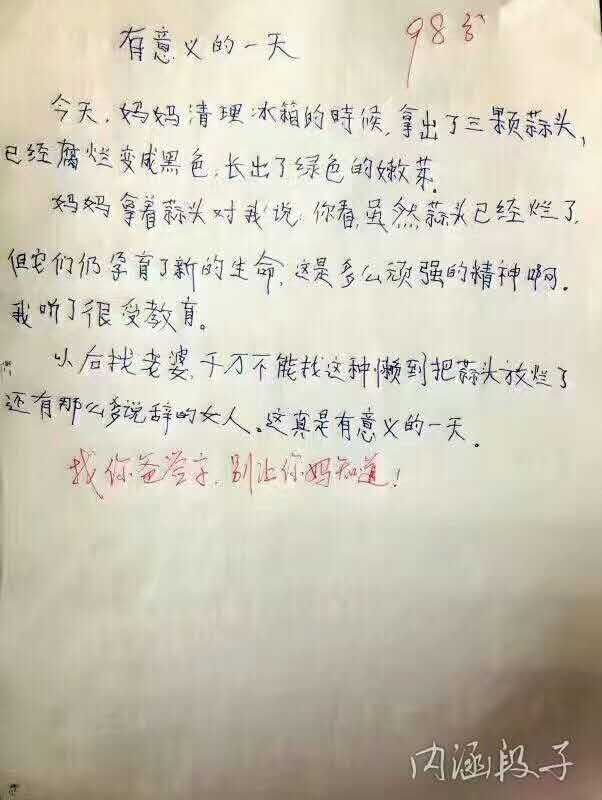 有意义的一天
98分
今天,妈妈清理冰箱的時候,拿出了三颗蒜头,
已经腐烂变成黑色,长出了绿色的嫩芽.
妈妈拿着蒜头对我说:你看,虽然蒜头已经烂了,
但它们仍孕育了新的生命,这是多么顽强的精神啊.
我听了很受教育。
以后找老婆,千万不能找这种懒到把蒜头放烂了
还有那么多说辞的女人。这真是有意义的一天.
找你爸签字,别让你妈知道!
内涵段子